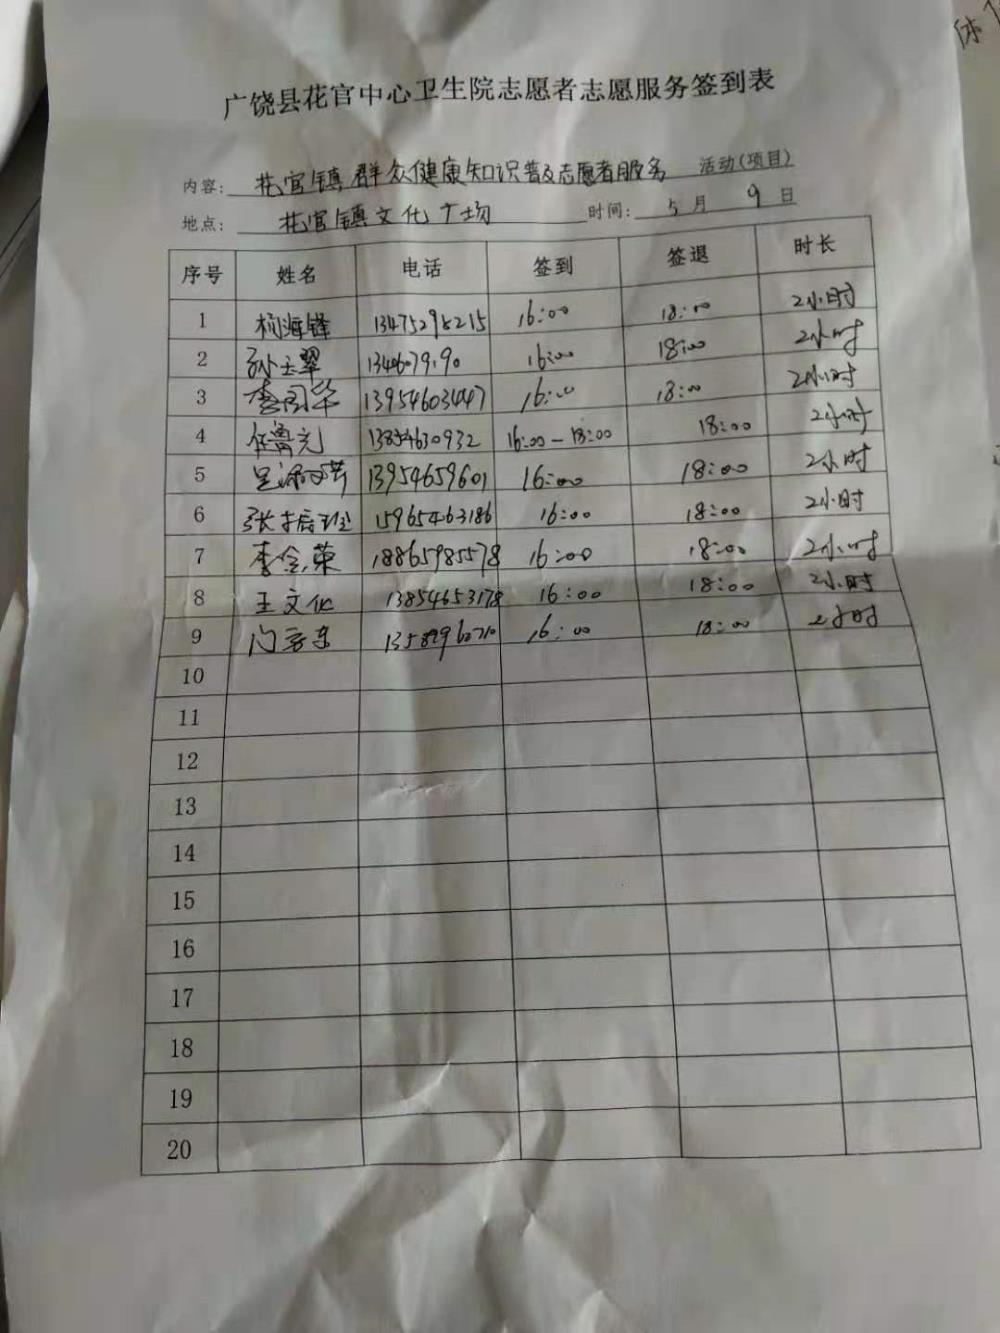 广饶县花官中心卫生院志愿者志愿服务签到表
内容: 花官镇群众健康知识普及志愿者服务 活动(项目)
地点: 花官镇文化广场 时间: 5 月 9 日
序号 姓名 电话 签到 签退 时长
1 海锋 13475298215 16:00 18:00 2小时
2 孙玉翠 16:00 18:00 2小时
3 李国华 13954603447 16:00 18:00 2小时
4 任鲁光 13854630932 16:00-18:00 18:00 2小时
5 13954659601 16:00 18:00 2小时
6 张 15965463186 16:00 18:00 2小时
7 李令荣 18865985578 16:00 18:00 2小时
8 王文化 13854653178 16:00 18:00 2小时
9 16:00 18:00 2小时
10
11
12
13
14
15
16
17
18
19
20